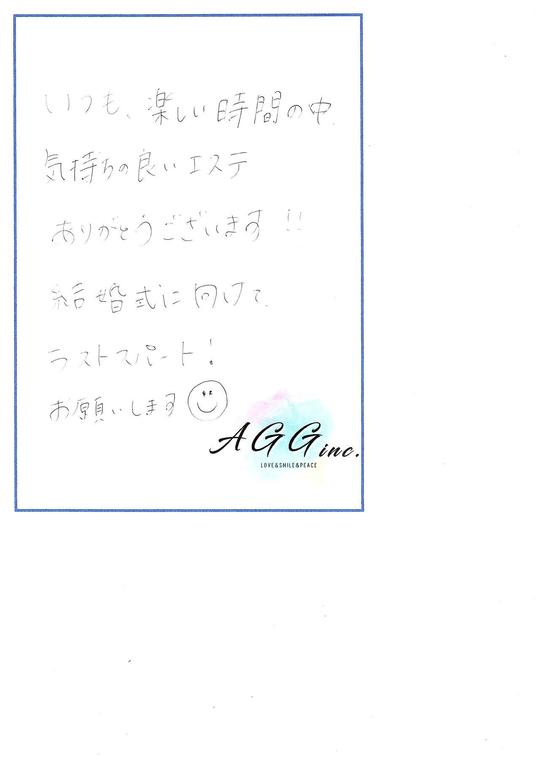 いつも、楽しい時間の中
気持ちの良いエステ
ありがとうございます!!
結婚式に向けて
ラストスパート!
お願いします
AGGinc.
LOVE&SMILE&PEACE